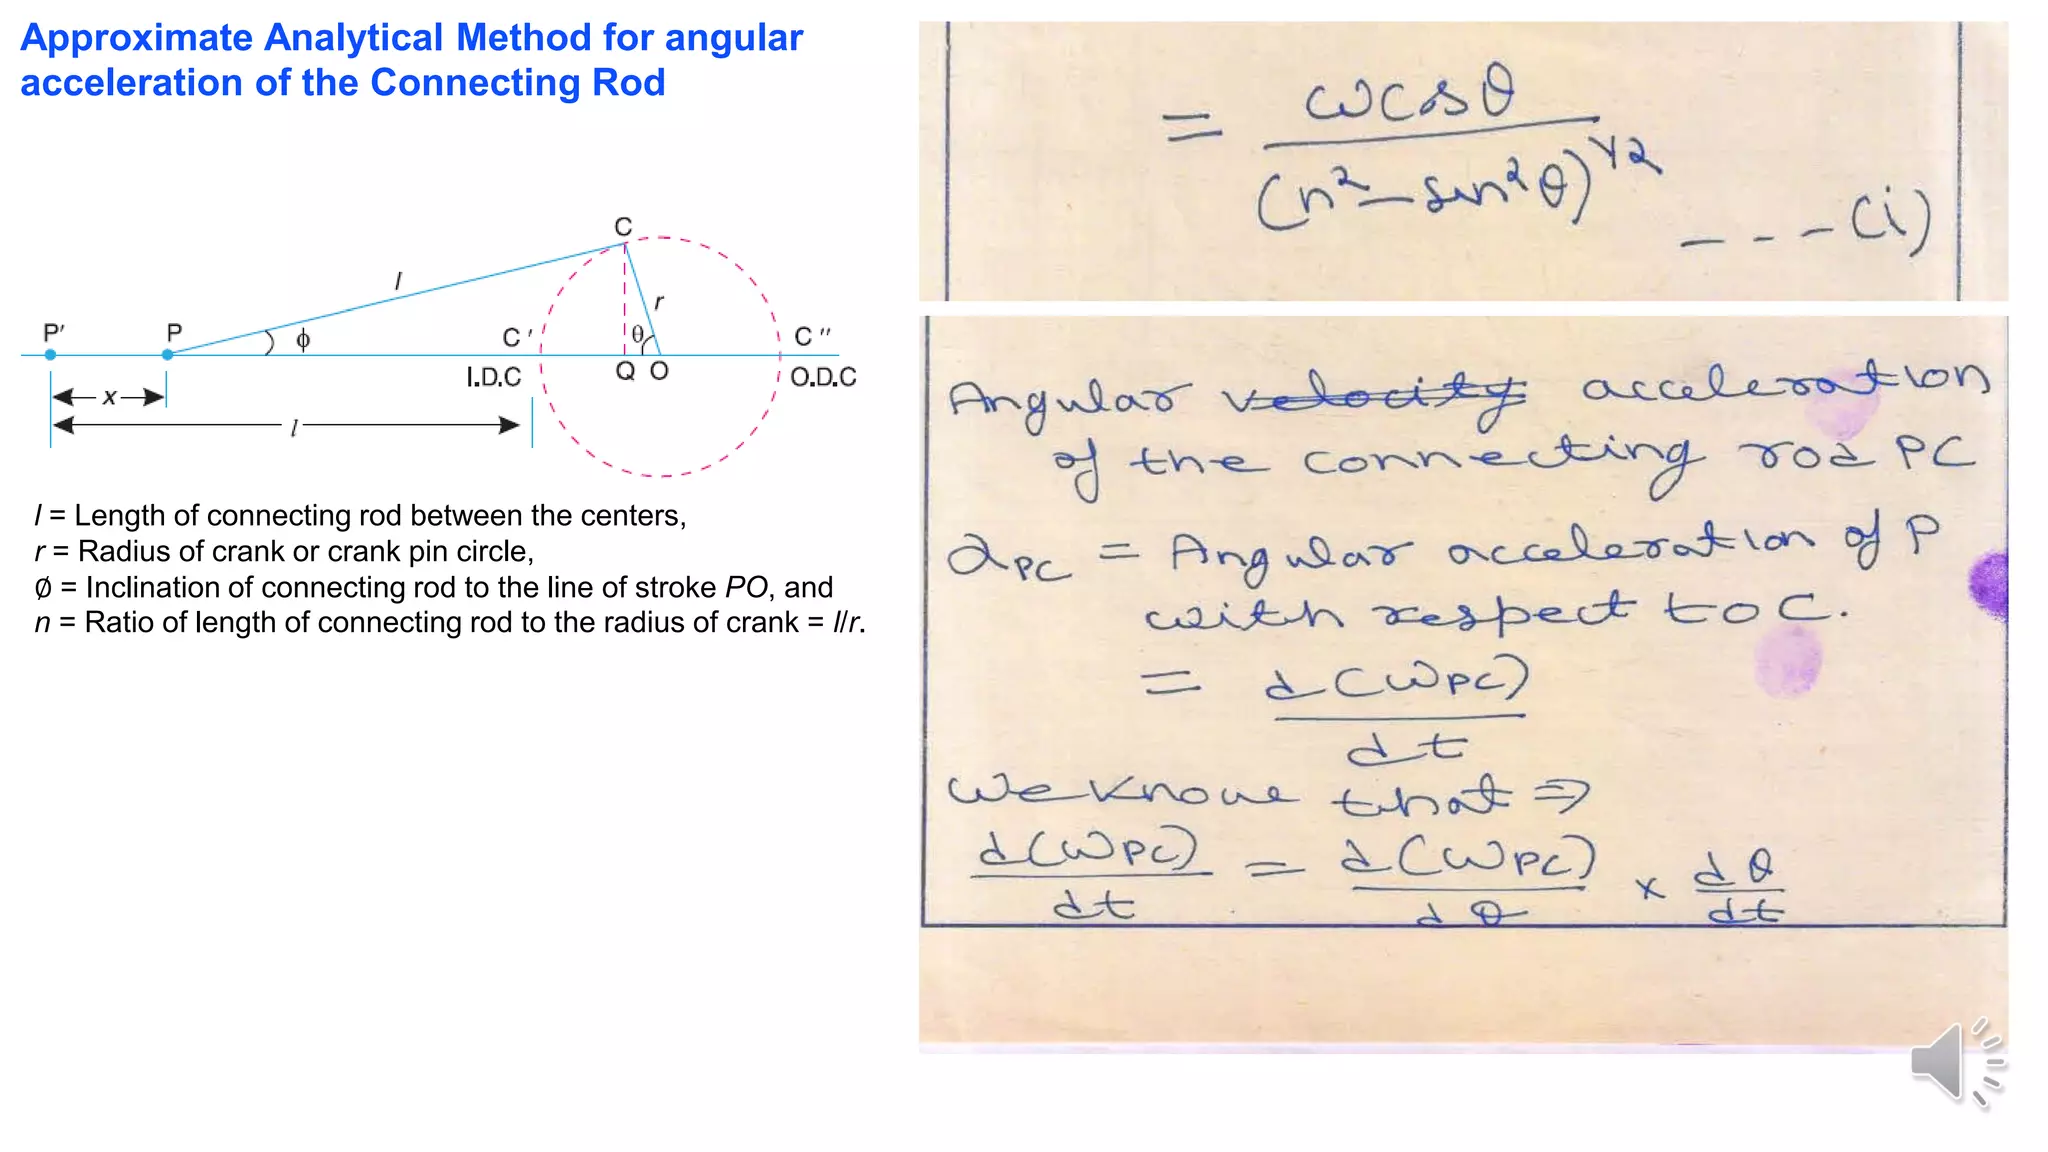 Approximate Analytical Method for angular
acceleration of the Connecting Rod
C
l
r
P′ P ϕ C ′ θ C ″
I.D.C Q O O.D.C
x
l
l = Length of connecting rod between the centers,
r = Radius of crank or crank pin circle,
∅ = Inclination of connecting rod to the line of stroke PO, and
n = Ratio of length of connecting rod to the radius of crank = l/r.
= ωcosθ
(n²-sin²θ)^1/2
---(i)
Angular velocity acceleration
of the connecting rod PC
αPC = Angular acceleration of P
with respect to C.
= d(ωPC)
dt
we know that ⇒
d(ωPC) = d(ωPC) x dθ
dt dθ dt